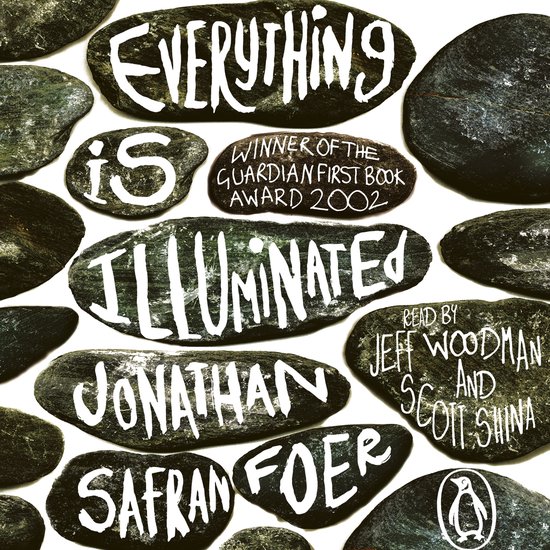 EVERYTHING
iS
WINNER OF THE
GUARDIAN FIRST BOOK
AWARD 2002
ILLUMiNATEd
JONATHAN
SAFRAN
FOER
READ BY
JEFF WOODMAN
AND
SCOTT SHINA